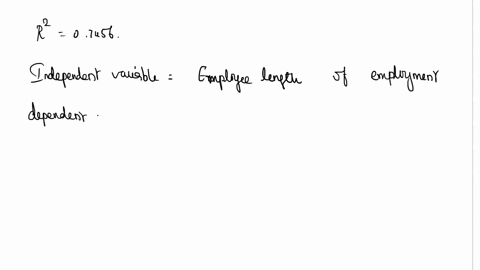 R² = 0.7456.
Independent variable = Employee length of employment
dependent .